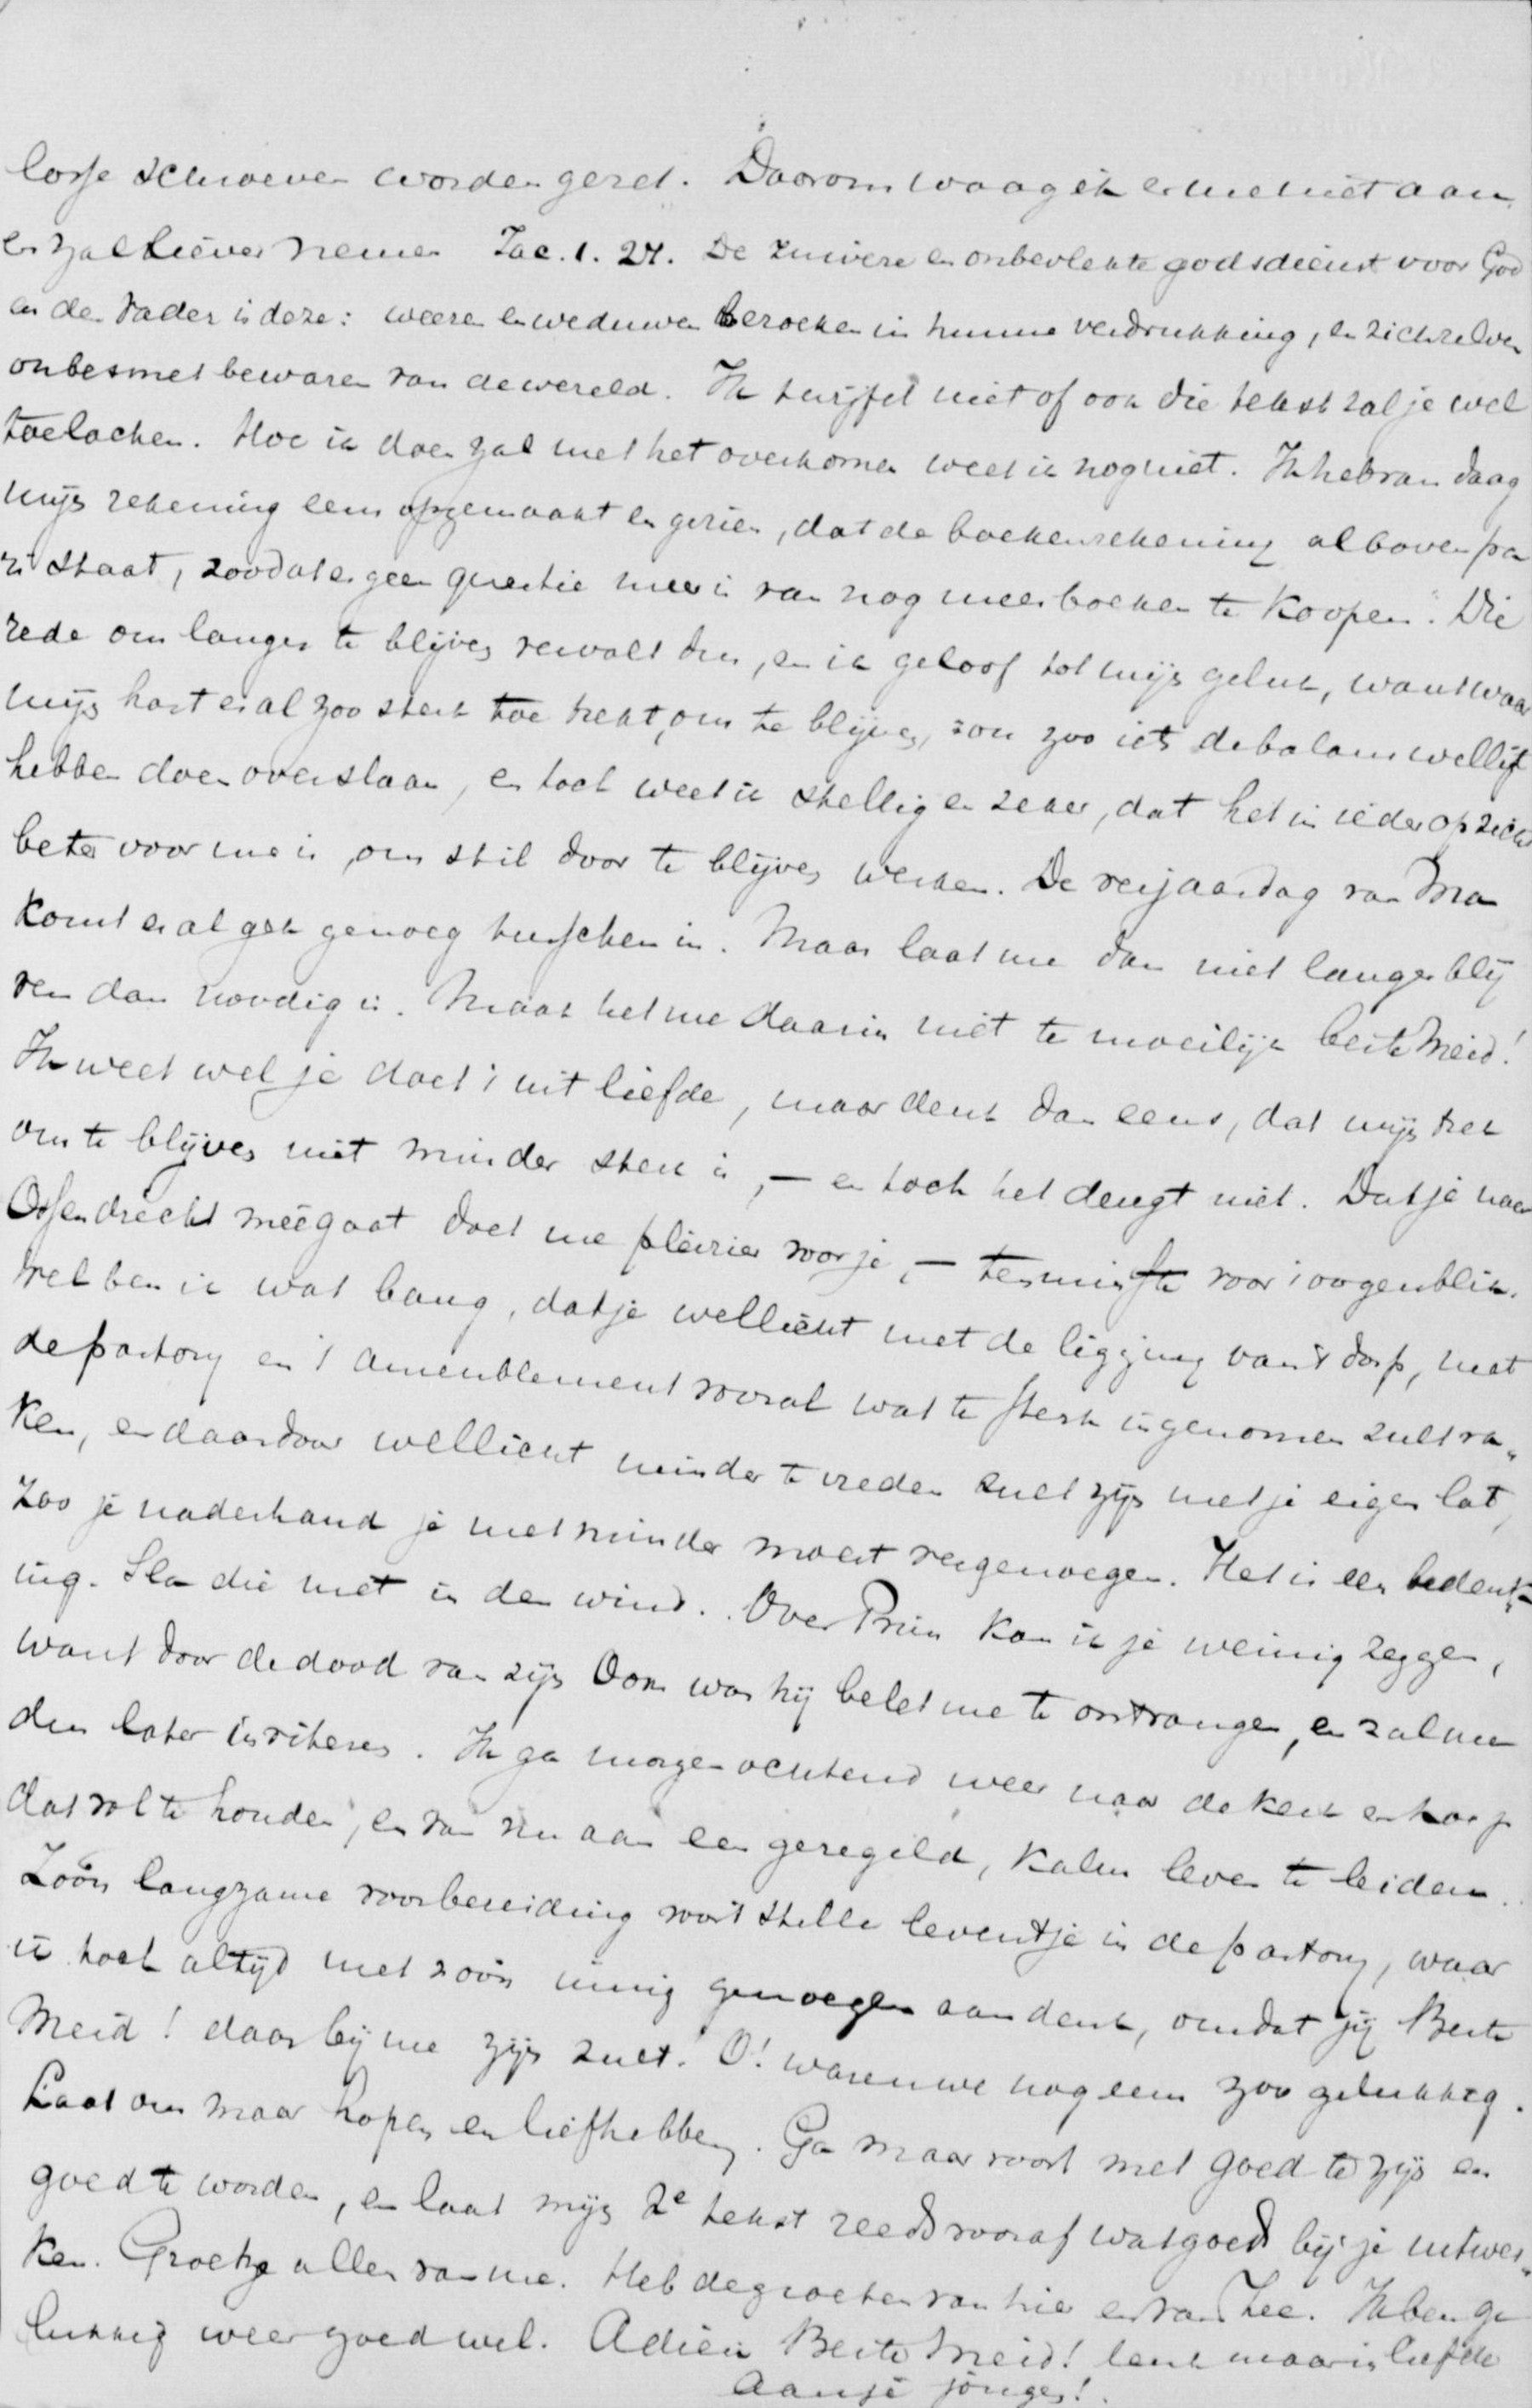 losse schroeven worden gezet. Daarom waag ik er me niet aan
en zal liever nemen Jac. 1. 27. De zuivere en onbevlekte godsdienst voor God
en den Vader is deze: weezen en weduwen bezoeken in hunne verdrukking, en zichzelven
onbesmet bewaren van de wereld. Ik twijfel niet of ook die tekst zal je wel
toelachen. Hoe ik doen zal met het overkomen weet ik nog niet. Ik heb van daag
mijn rekening eens opgemaakt en gezien, dat de boekenrekening al boven pa
ri staat, zoodat er geen quaestie meer is van nog meer boeken te koopen. Die
rede om langer te blijven vervalt dus, en ik geloof tot mijn geluk, want waar
mijn hart er al zoo sterk toe trekt, om te blijven, zou zoo iets de balans wellicht
hebben doen overslaan, en toch weet ik stellig en zeker, dat het in ieder opzicht
beter voor me is, om stil door te blijven werken. De verjaardag van Ma
komt er al gek genoeg tusschen in. Maar laat me dan niet langer blij
ven dan noodig is. Maak het me daarin niet te moeilijk beste Meid!
Ik weet wel je doet 't uit liefde, maar denk dan eens, dat mijn trek
om te blijven niet minder sterk is, — en toch het deugt niet. Dat je naar
Ossendrecht meêgaat doet me pleizier voor je, — tenminste voor 't oogenblik.
Wel ben ik wat bang, dat je wellicht met de ligging van 't dorp, met
de pastory en 't ameublement vooral wat te sterk ingenomen zult ra„
ken, en daardoor wellicht minder te vreden zult zijn met je eigen lot,
zoo je naderhand je met minder moest vergenoegen. Het is een bedenk„
ing. Sla die niet in den wind. Over Prin kan ik je weinig zeggen,
want door de dood van zijn Oom was hij belet me te ontvangen, en zal me
dus later inviteren. Ik ga morgen ochtend weer naar de kerk en hoop
dat vol te houden, en van nu aan een geregeld, kalm leven te leiden.
Zóó'n langzame voorbereiding voor 't stille leventje in de pastory, waar
ik toch altijd met zóó'n innig genoegen aan denk, omdat jij Beste
Meid! daar bij me zijn zult. O! waren we nog eens zoo gelukkig.
Laat ons maar hopen en liefhebben. Ga maar voort met goed te zijn en
goed te worden, en laat mijn 2e tekst reeds vooraf wat goed bij je uitwer„
ken. Groet je allen van me. Heb de groeten van hier en van Zee. Ik ben ge
lukkig weer goed wel. Adieu Beste Meid! denk maar in liefde
aan je jongen!